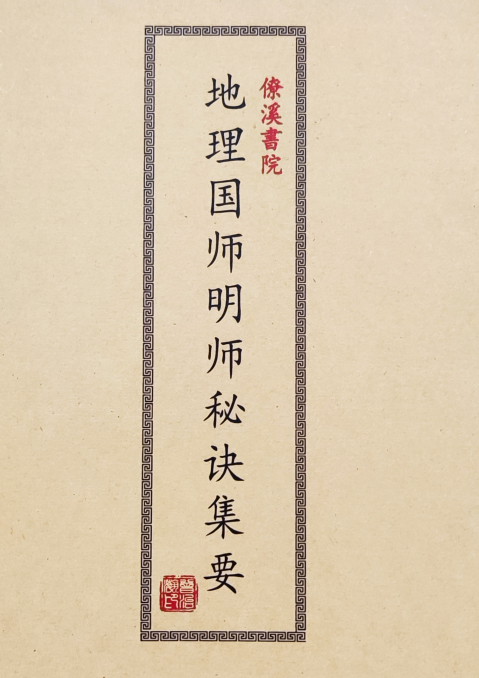 僚溪書院
地理国师明师秘诀集要